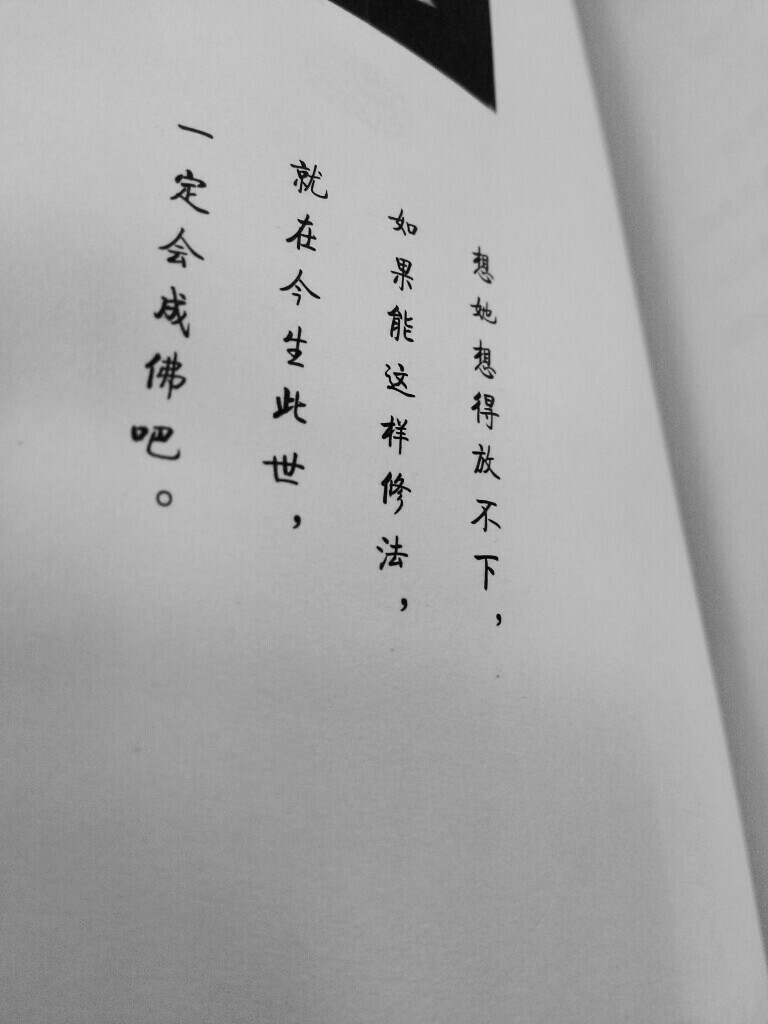 想她想得放不下，
如果能这样修法，
就在今生此世，
一定会成佛吧。